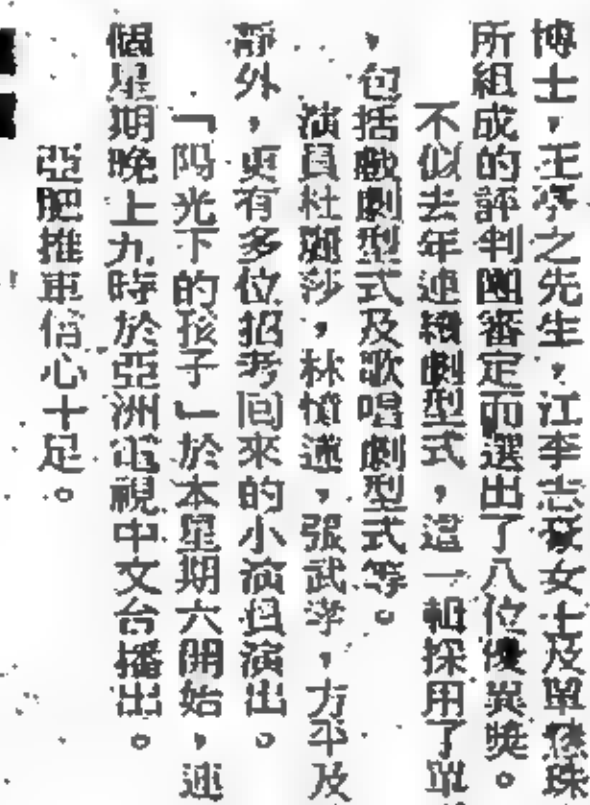 博士，王亭之先生，江李志豪女士及單慧珠
所組成的評判團審定而選出了八位優異獎。
不似去年連續劇型式，這一輯採用了單
，包括戲劇型式及歌唱劇型式等。
演員杜麗莎，林憤進，張武孝，方平及
靜外，更有多位招考回來的小演員演出。
「陽光下的孩子」於本星期六開始，連
個星期晚上九時於亞洲電視中文台播出。
亞肥推車信心十足。